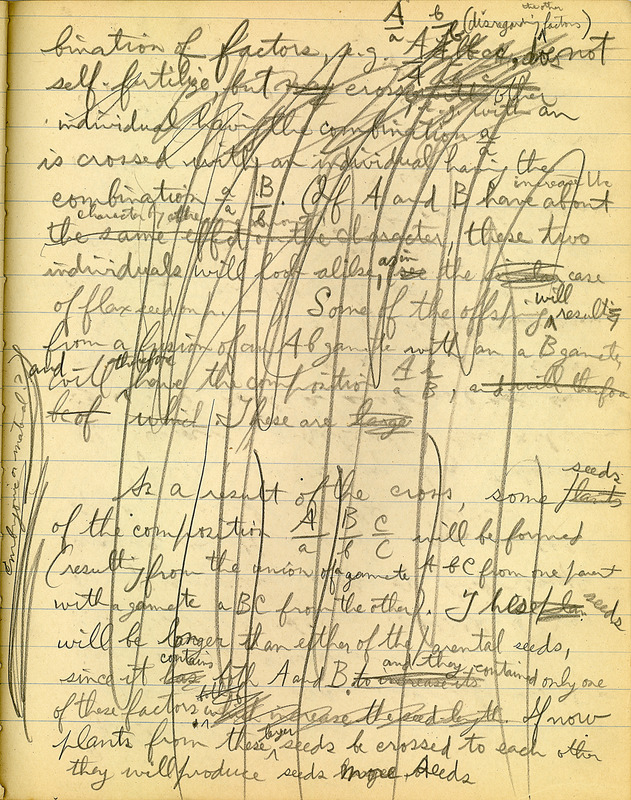 A/a b/b (disregarding the other factors)
bination of factors, e.g. does not
self-fertilize, but crosses
with an
individual having the combination a/a
is crossed with an individual having the
combination a/a B/b. (If A and B have about
increase the
character by the same amount
the same effect on the character, these two
individuals will look alike, as in the case
of flax seed on p. — ). Some of the offspring will result
from a fusion of an A b gamete with an a B gamete,
and will therefore have the composition A/a b/B, and will therefore
be of which. These are large
embryonic or maternal
As a result of the cross, some seeds plants
of the composition A/a B/b c/C will be formed
(resulting from the union of a gamete A b C from one parent
with a gamete a B C from the other). These seeds
will be longer than either of the parental seeds,
since it has contains both A and B, and they contained only one
of these factors which increase the seed length. If now
plants from these larger seeds be crossed to each other
they will produce seeds seeds